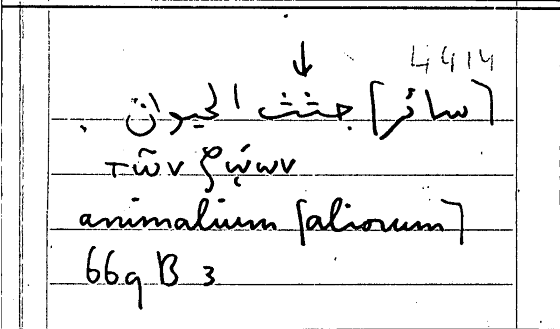 4414
↓
[سائر] جثث الحيوان
τῶν ζῴων
animalium [aliorum]
669 B 3